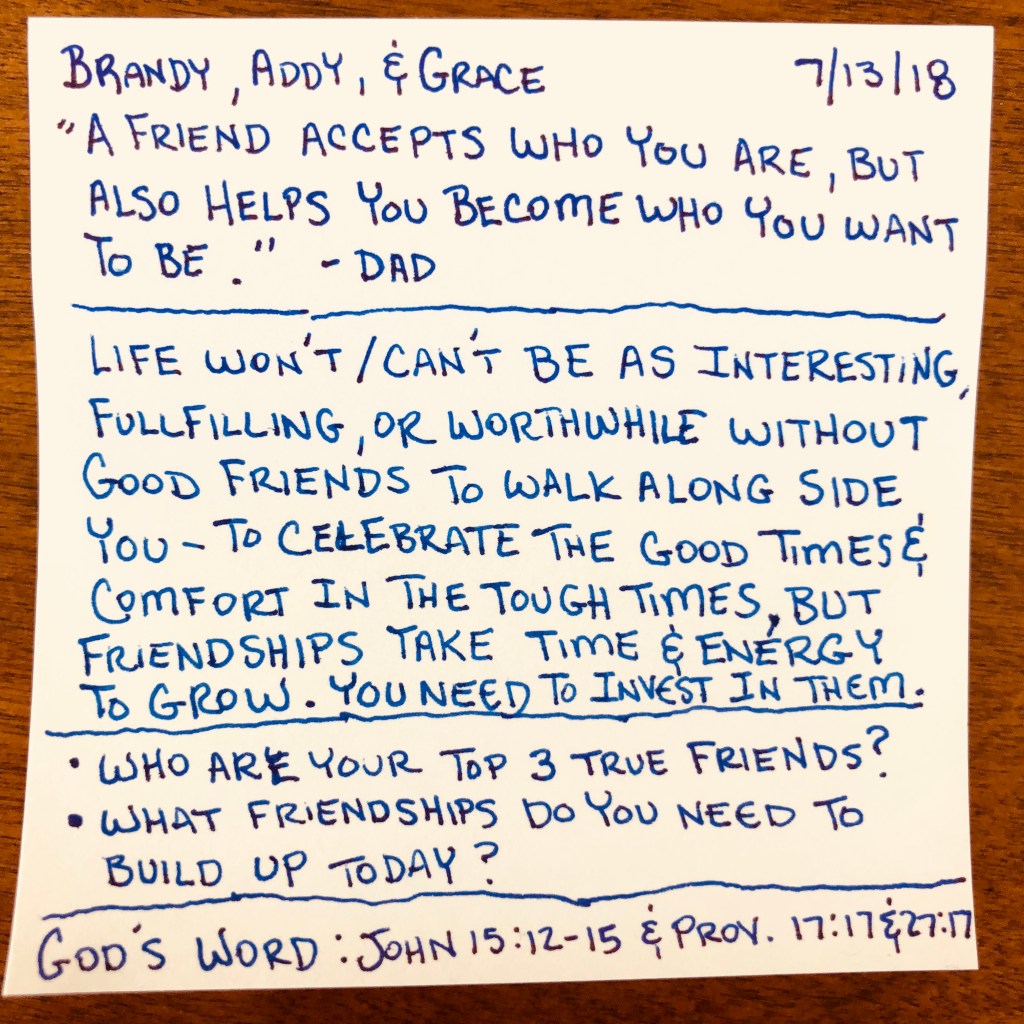 BRANDY, ADDY, & GRACE 7/13/18
"A FRIEND ACCEPTS WHO YOU ARE, BUT
ALSO HELPS YOU BECOME WHO YOU WANT
TO BE." - DAD
LIFE WON'T/CAN'T BE AS INTERESTING,
FULLFILLING, OR WORTHWHILE WITHOUT
GOOD FRIENDS TO WALK ALONG SIDE
YOU - TO CELEBRATE THE GOOD TIMES &
COMFORT IN THE TOUGH TIMES, BUT
FRIENDSHIPS TAKE TIME & ENERGY
TO GROW. YOU NEED TO INVEST IN THEM.
• WHO ARE YOUR TOP 3 TRUE FRIENDS?
• WHAT FRIENDSHIPS DO YOU NEED TO
BUILD UP TODAY?
GOD'S WORD: JOHN 15:12-15 & PROV. 17:17 & 27:17